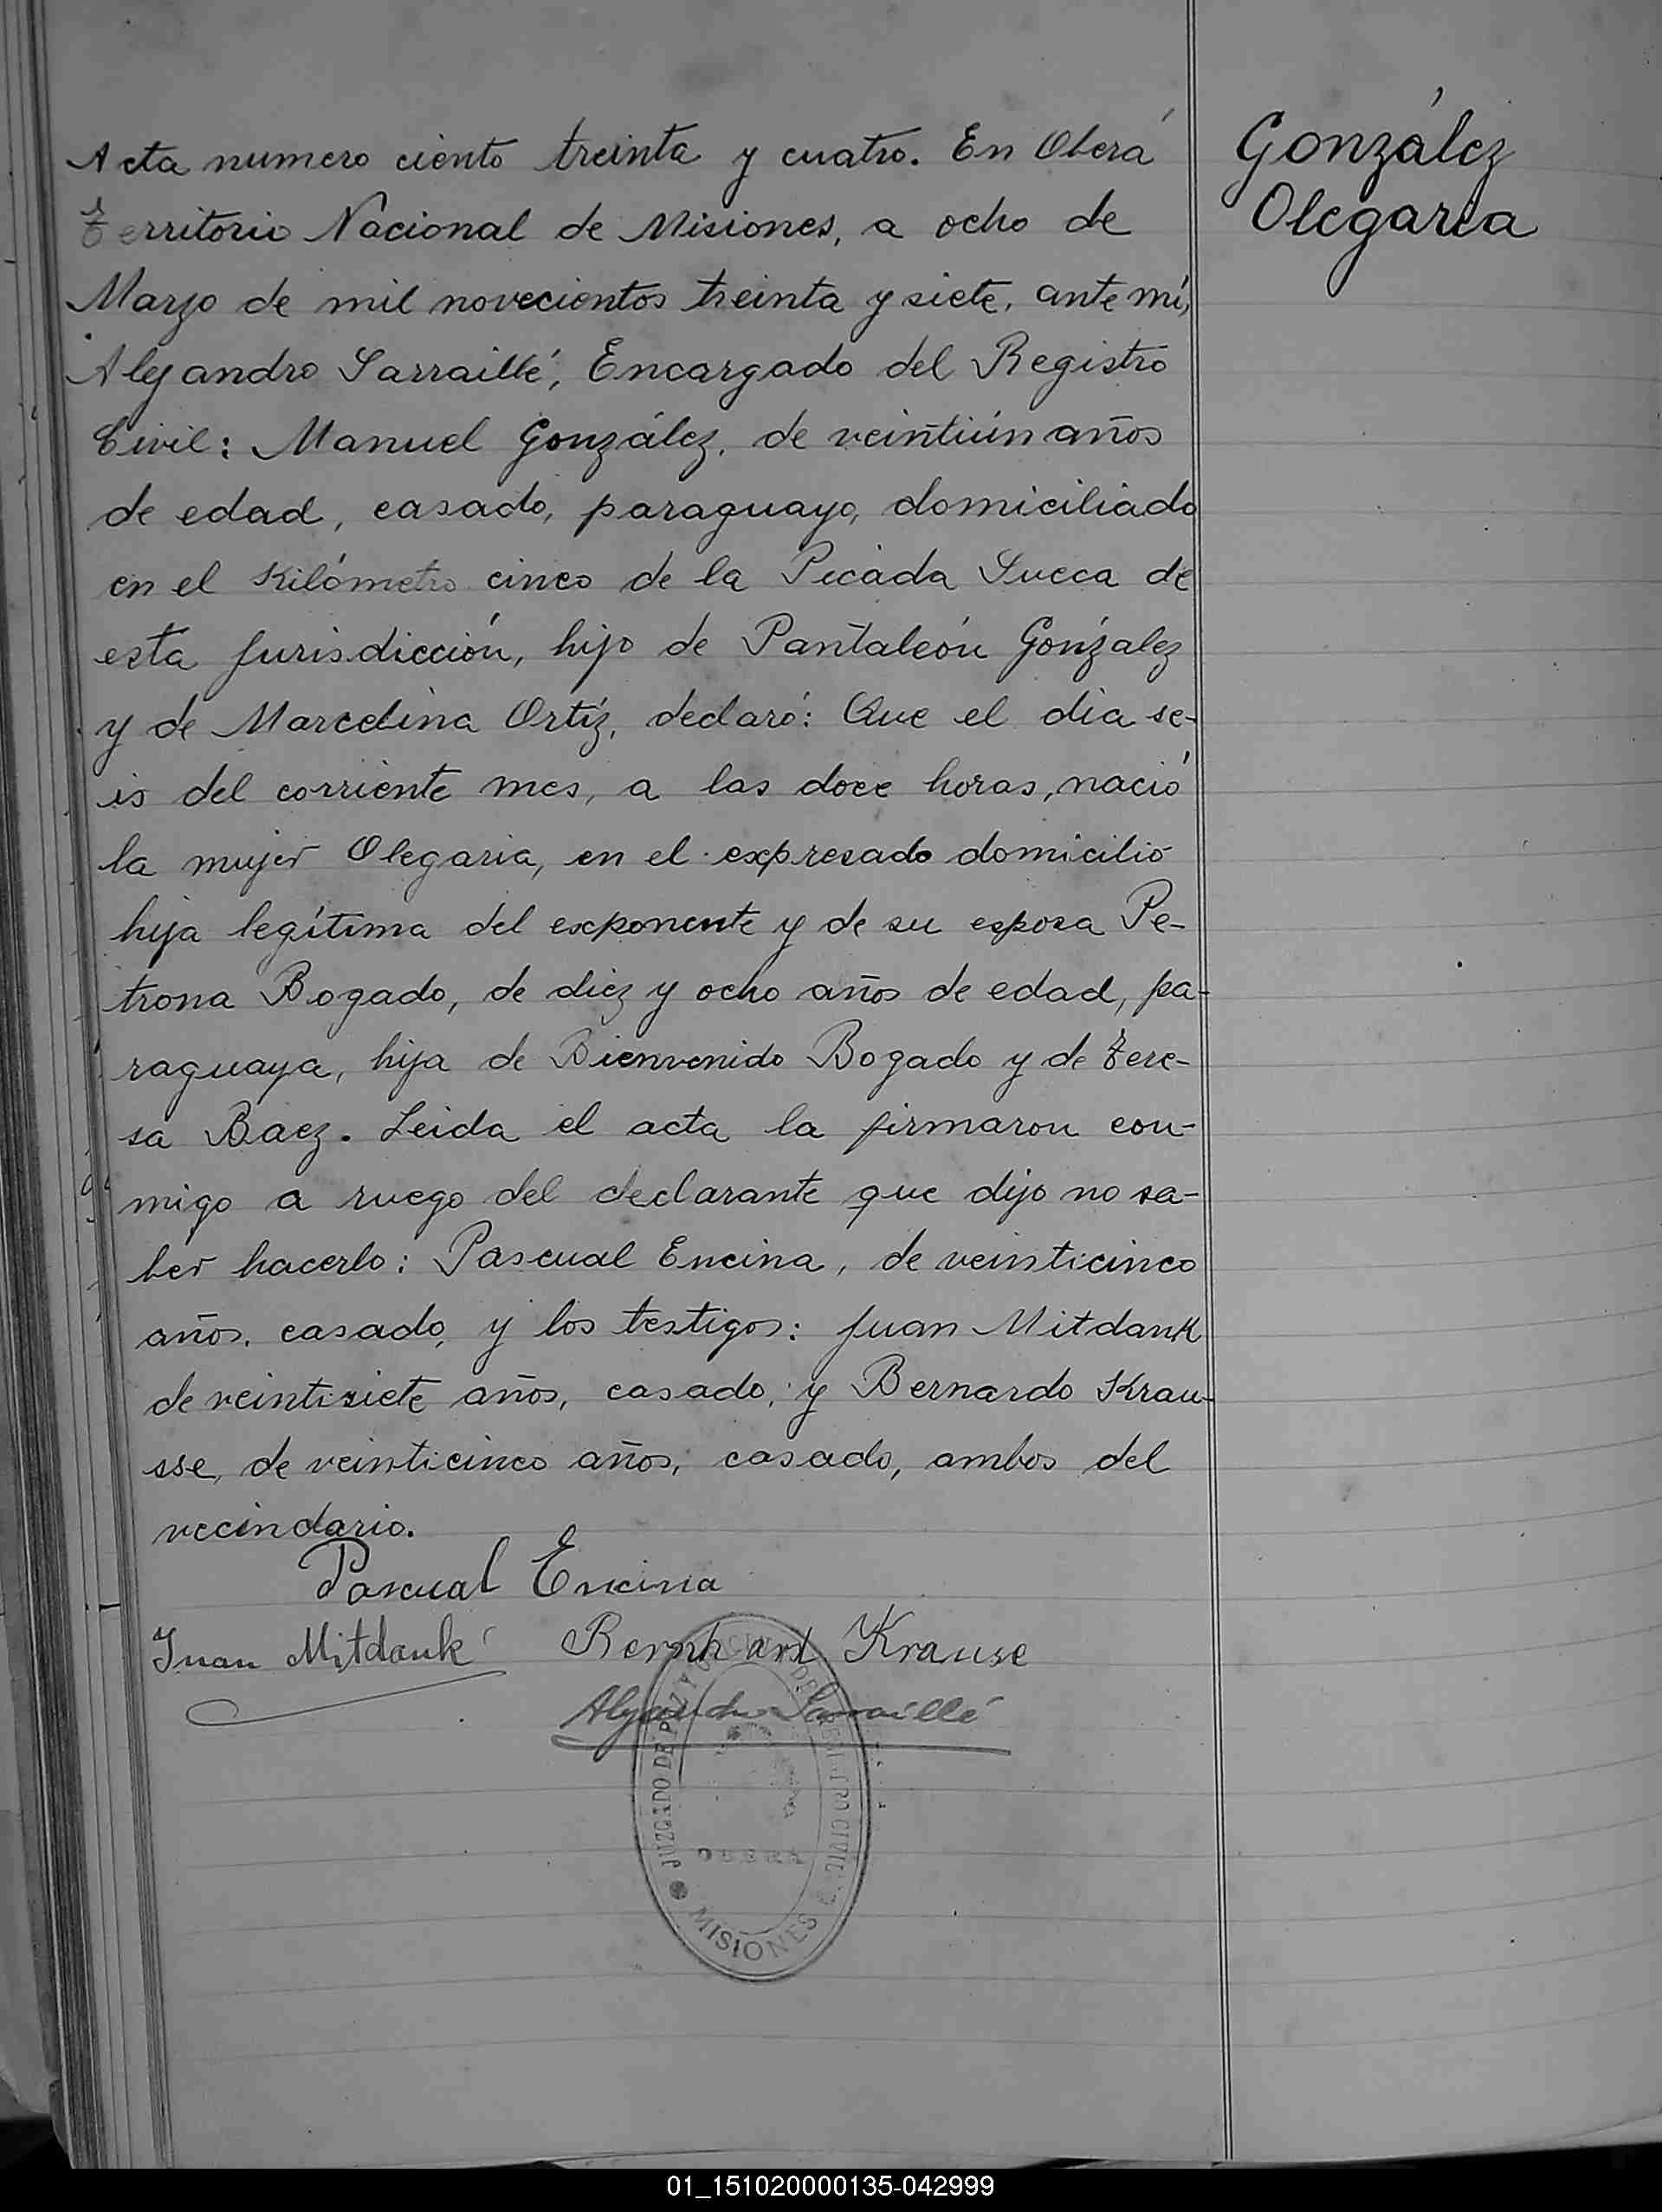 Acta numero ciento treinta y cuatro. En Oberá
Territorio Nacional de Misiones, a ocho de
Marzo de mil novecientos treinta y siete, ante mí,
Alejandro Sarraillé, Encargado del Registro
Civil: Manuel González, de veintiún años
de edad, casado, paraguayo, domiciliado
en el Kilómetro cinco de la Picada Sueca de
esta Jurisdicción, hijo de Pantaleón González
y de Marcelina Ortíz, declaró: Que el dia se-
is del corriente mes, a las doce horas, nació
la mujer Olegaria, en el expresado domicilio
hija legítima del exponente y de su esposa Pe-
trona Bogado, de diez y ocho años de edad, pa-
raguaya, hija de Bienvenido Bogado y de Tere-
sa Baez. Leida el acta la firmaron con-
migo a ruego del declarante que dijo no sa-
ber hacerlo: Pascual Encina, de veinticinco
años, casado, y los testigos: Juan Mitdank
de veintisiete años, casado, y Bernardo Krau-
sse, de veinticinco años, casado, ambos del
vecindario.
Pascual Encina
Juan Mitdank Bernhard Krause
Alejandro Sarraillé
JUZGADO DE PAZ Y DEL REGISTRO CIVIL
OBERA
MISIONES
González
Olegaria
01_151020000135-042999